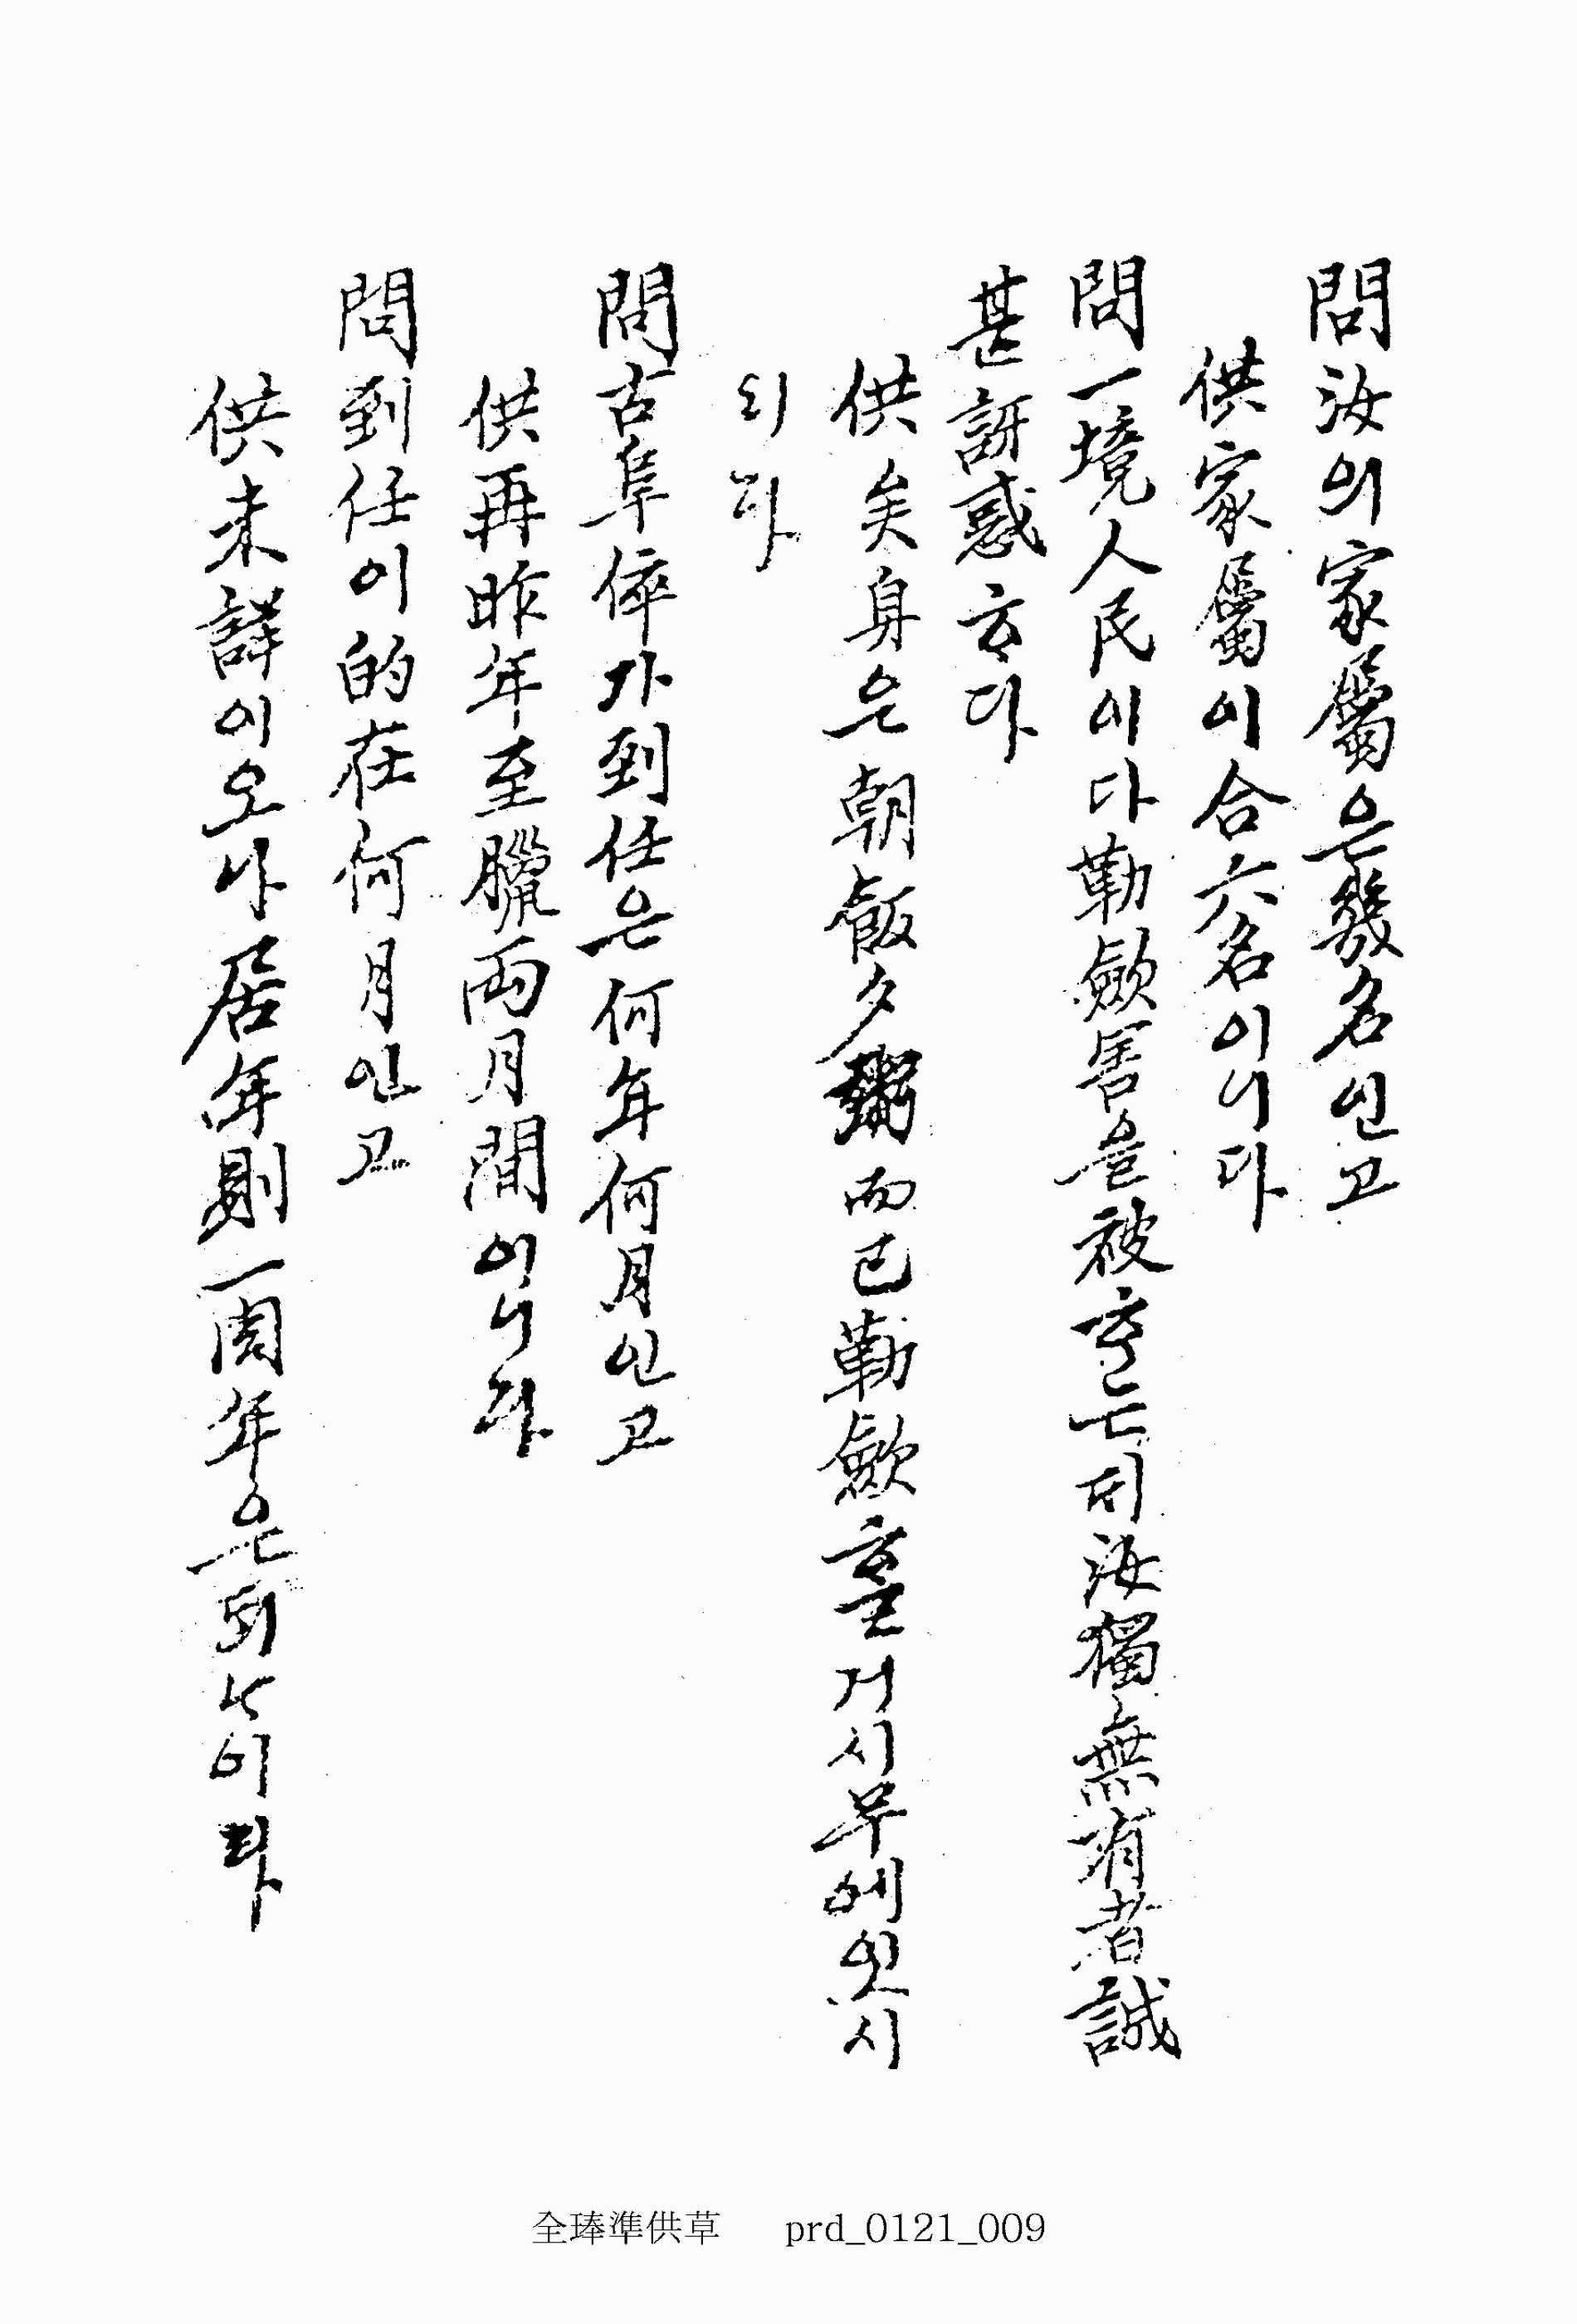 問汝의家屬은幾名인고
供家屬이合六名이니다
問一境人民이다勒歛害를被ᄒᆞ엿ᄂᆞᆫ듸汝獨無有者誠
甚訝惑ᄒᆞ다
供矣身은朝飯夕粥而已勒歛ᄒᆞᆯ거시무에잇시
되라
問古阜倅가到任은何年何月인고
供再昨年至臘兩月間이니라
問到任이的在何月인고
供未詳이오나居年則一周年은되ᄂᆞ이라
全琫準供草 prd_0121_009